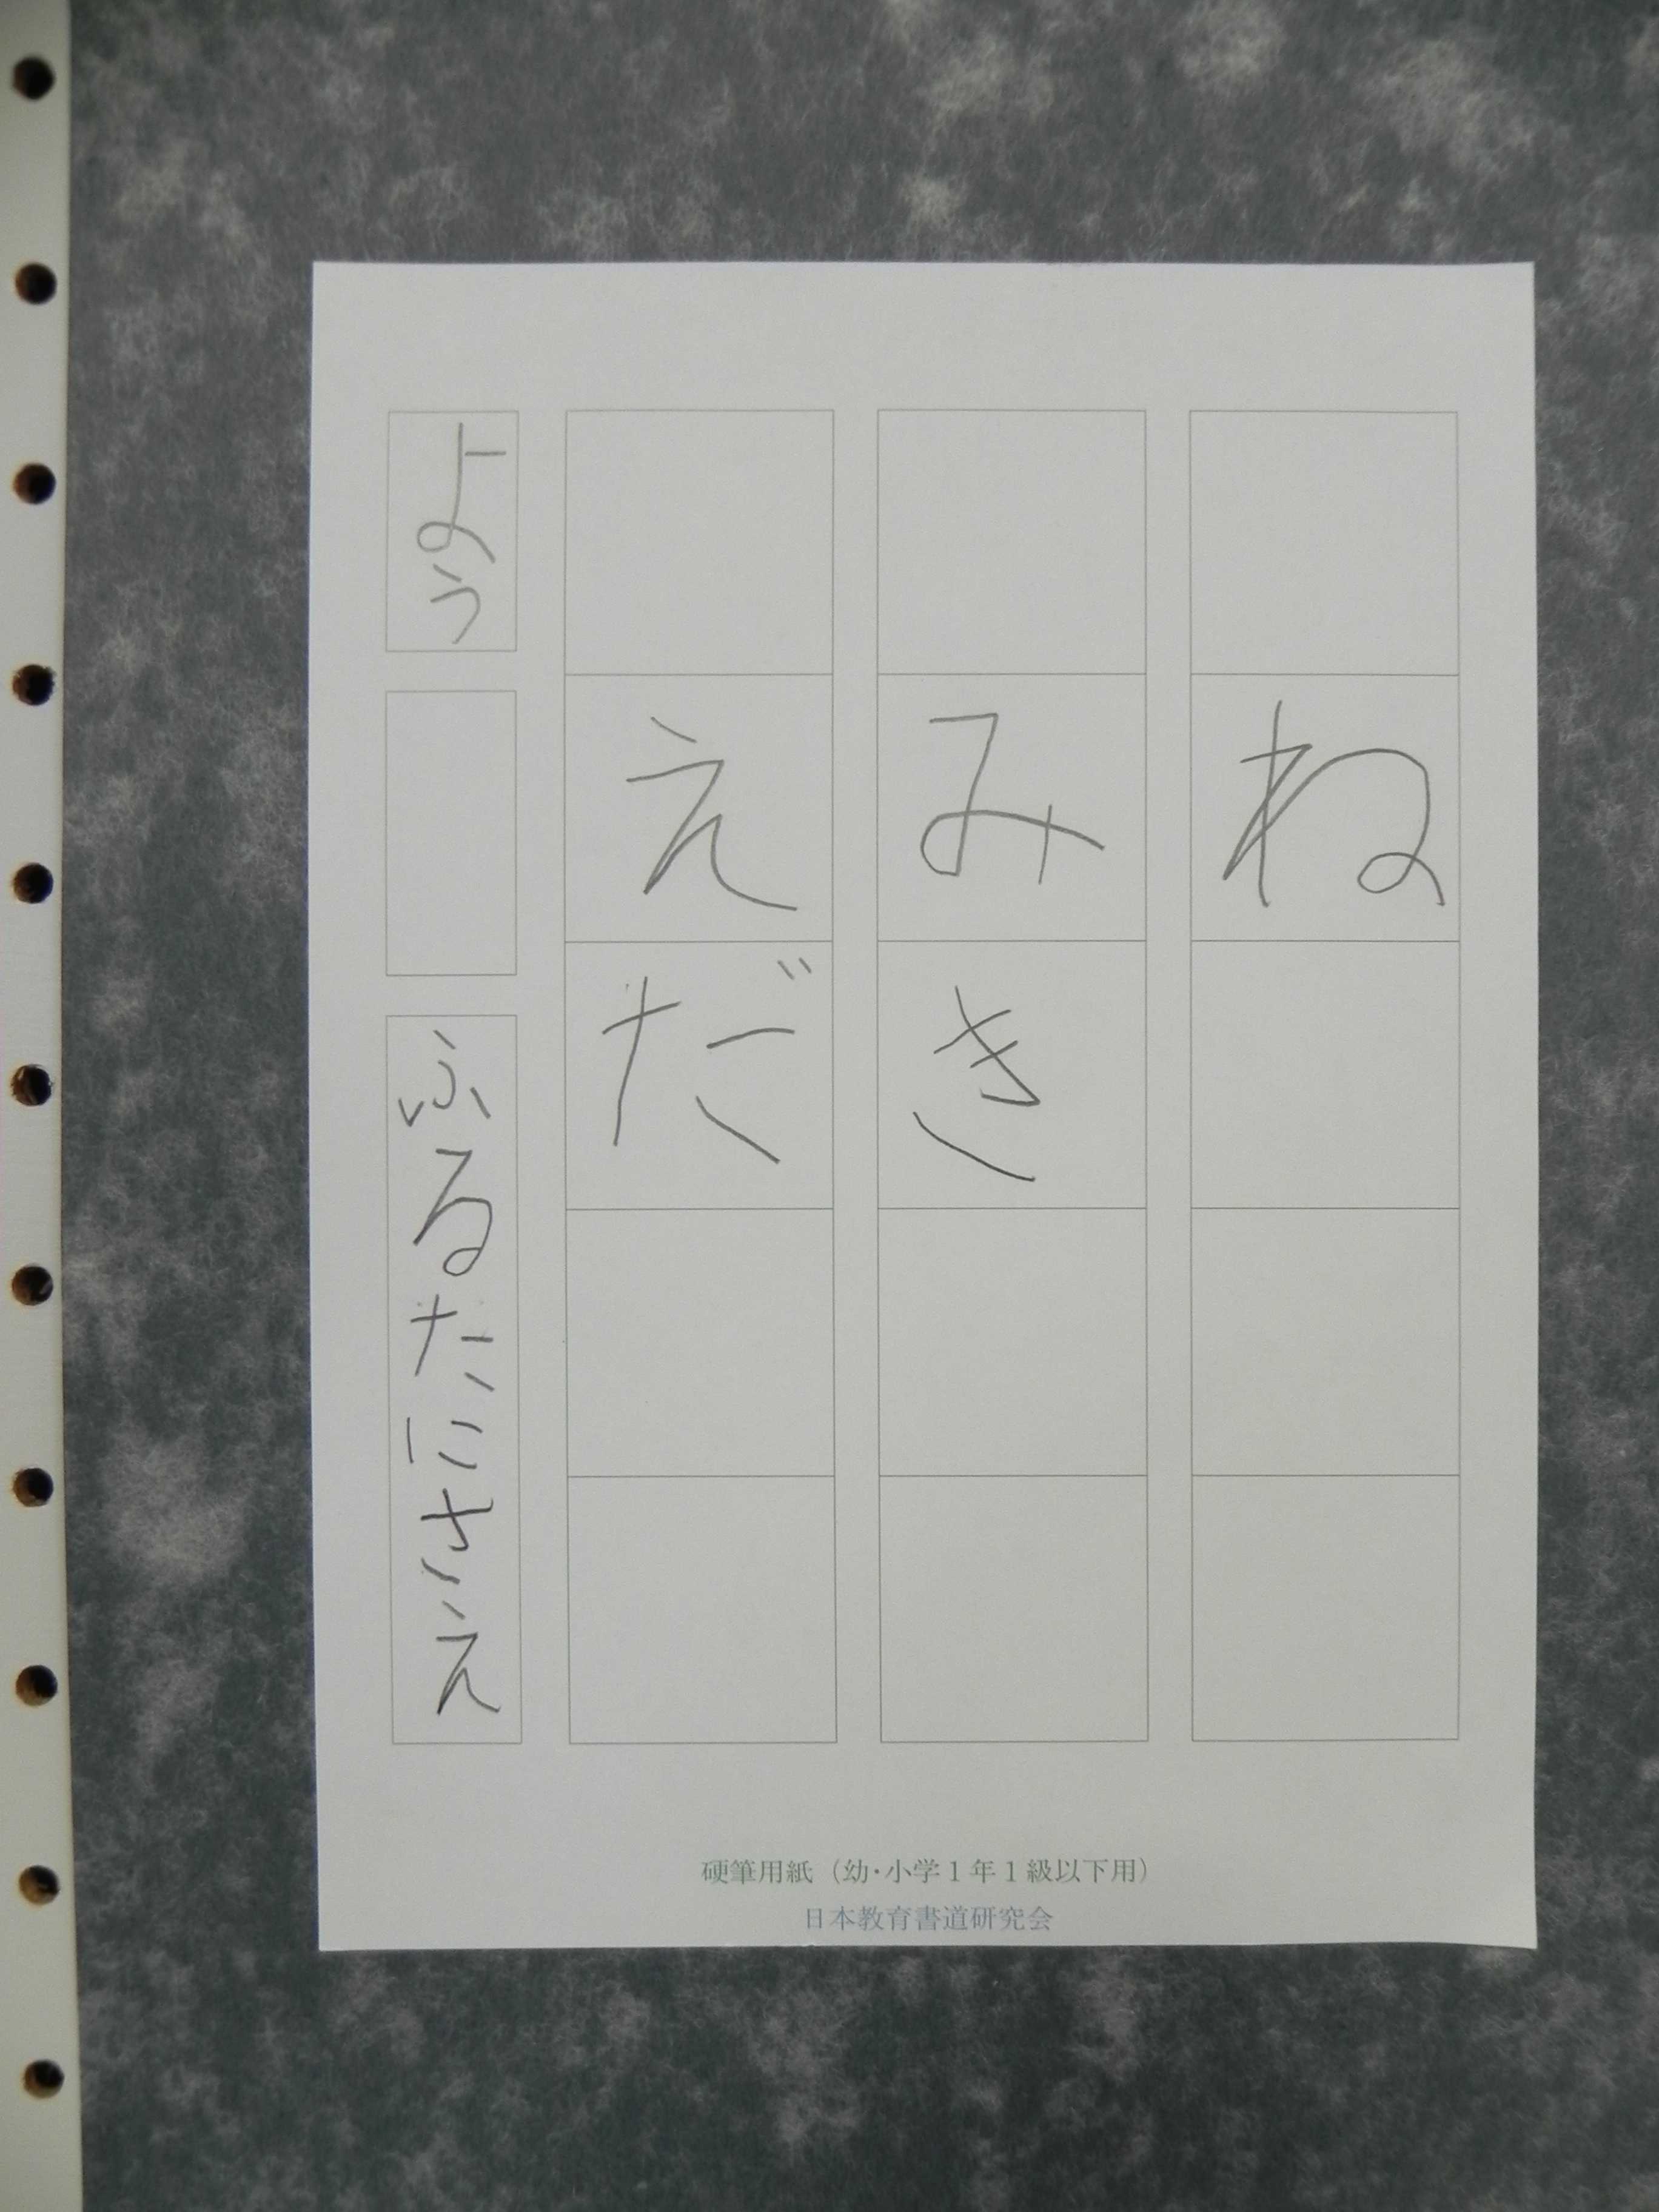 ね
みき
えだ
よう
ふるたにさえ
硬筆用紙（幼・小学1年1級以下用）
日本教育書道研究会